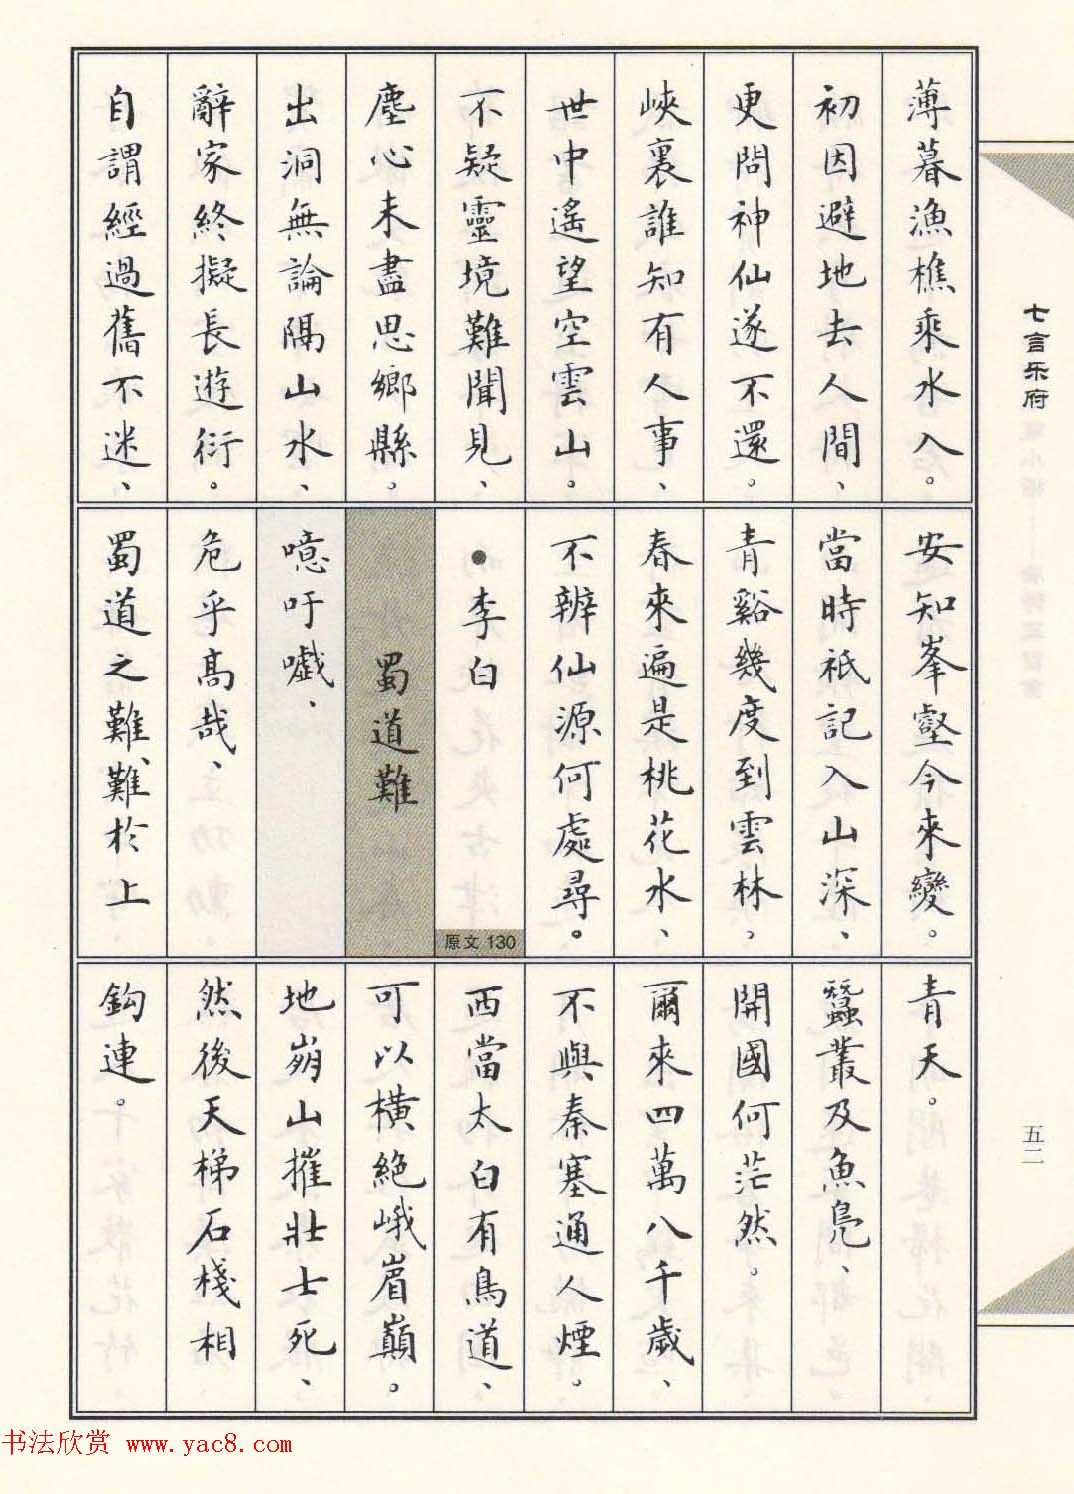 薄暮漁樵乘水入。
初因避地去人間、
更問神仙遂不還。
峽裏誰知有人事、
世中遙望空雲山。
不疑靈境難聞見、
塵心未盡思鄉縣。
出洞無論隔山水、
辭家終擬長遊衍。
自謂經過舊不迷、
安知峯壑今來變。
當時祇記入山深、
青谿幾度到雲林、
春來遍是桃花水、
不辨仙源何處尋。
●李白
原文 130
蜀道難
噫吁嚱、
危乎高哉、
蜀道之難、難於上
青天。
蠶叢及魚鳧、
開國何茫然。
爾來四萬八千歲、
不與秦塞通人煙。
西當太白有鳥道、
可以橫絕峨眉巔。
地崩山摧壯士死、
然後天梯石棧相
鈎連。
七言乐府
五二
书法欣赏 www.yac8.com